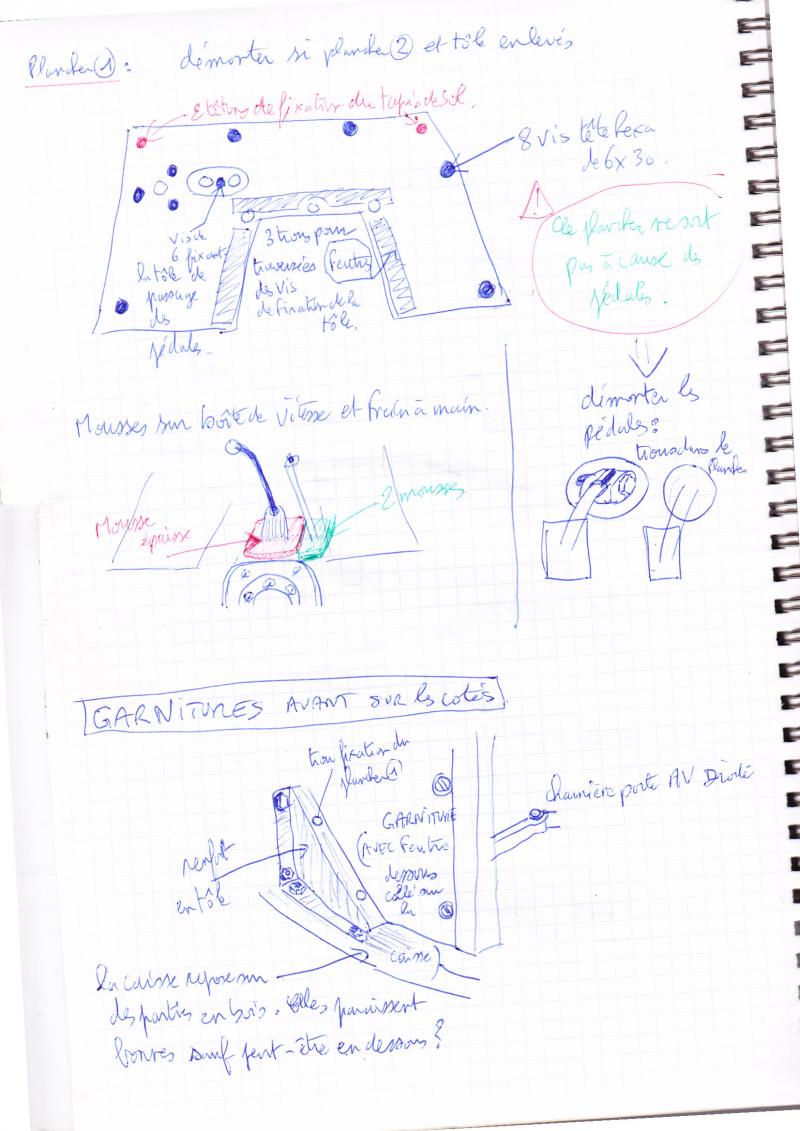 Plancher ① : démonter si plancher ② et tôle enlevés
2 tétons de fixation du tapis de sol.
8 vis tête hexa
de 6x30.
vis de
6 fixant
la tôle de
passage
des
pédales.
3 trous pour
traversées
des vis
de fixation de la
tôle.
Feutres
Ce plancher ne sort
pas à cause des
pédales.
démonter les
pédales :
trous dans le
plancher
Mousses sur boîte de vitesse et frein à main.
Mousse
épaisse
2 mousses
GARNITURES AVANT SUR les cotés
trou fixation du
plancher ①
renfort
en tôle
GARNITURE
(AVEC Feutre
dessous
collé sur
la
caisse)
charnière porte AV Droite
la caisse repose sur
des parties en bois. elles paraissent
bonnes sauf peut-être en dessous ?